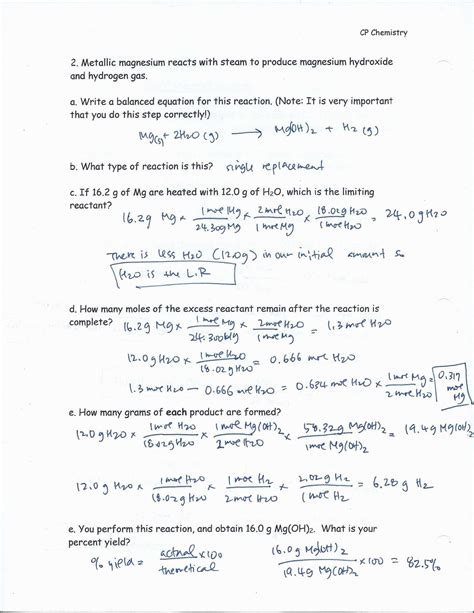 CP Chemistry
2. Metallic magnesium reacts with steam to produce magnesium hydroxide
and hydrogen gas.
a. Write a balanced equation for this reaction. (Note: It is very important
that you do this step correctly!)
Mg(s) + 2H2O (g) → Mg(OH)2 + H2 (g)
b. What type of reaction is this? single replacement
c. If 16.2 g of Mg are heated with 12.0 g of H2O, which is the limiting
reactant?
16.2g Mg × 1 mol Mg / 24.309 Mg × 2 mol H2O / 1 mol Mg × 18.02g H2O / 1 mol H2O = 24.0 g H2O
There is less H2O (12.0g) in our initial amount so
H2O is the L.R
d. How many moles of the excess reactant remain after the reaction is
complete? 16.2g Mg × 1 mol Mg / 24.300 Mg × 2 mol H2O / 1 mol Mg = 1.3 mol H2O
12.0g H2O × 1 mol H2O / 18.02g H2O = 0.666 mol H2O
1.3 mol H2O - 0.666 mol H2O = 0.634 mol H2O × 1 mol Mg / 2 mol H2O = 0.317 mol Mg
e. How many grams of each product are formed?
12.0 g H2O × 1 mol H2O / 18.02g H2O × 1 mol Mg(OH)2 / 2 mol H2O × 58.32g Mg(OH)2 / 1 mol Mg(OH)2 = 19.4g Mg(OH)2
12.0g H2O × 1 mol H2O / 18.02g H2O × 1 mol H2 / 2 mol H2O × 2.02g H2 / 1 mol H2 = 6.28g H2
e. You perform this reaction, and obtain 16.0 g Mg(OH)2. What is your
percent yield?
% yield = actual / theoretical × 100
16.0g Mg(OH)2 / 19.4g Mg(OH)2 × 100 = 82.5%